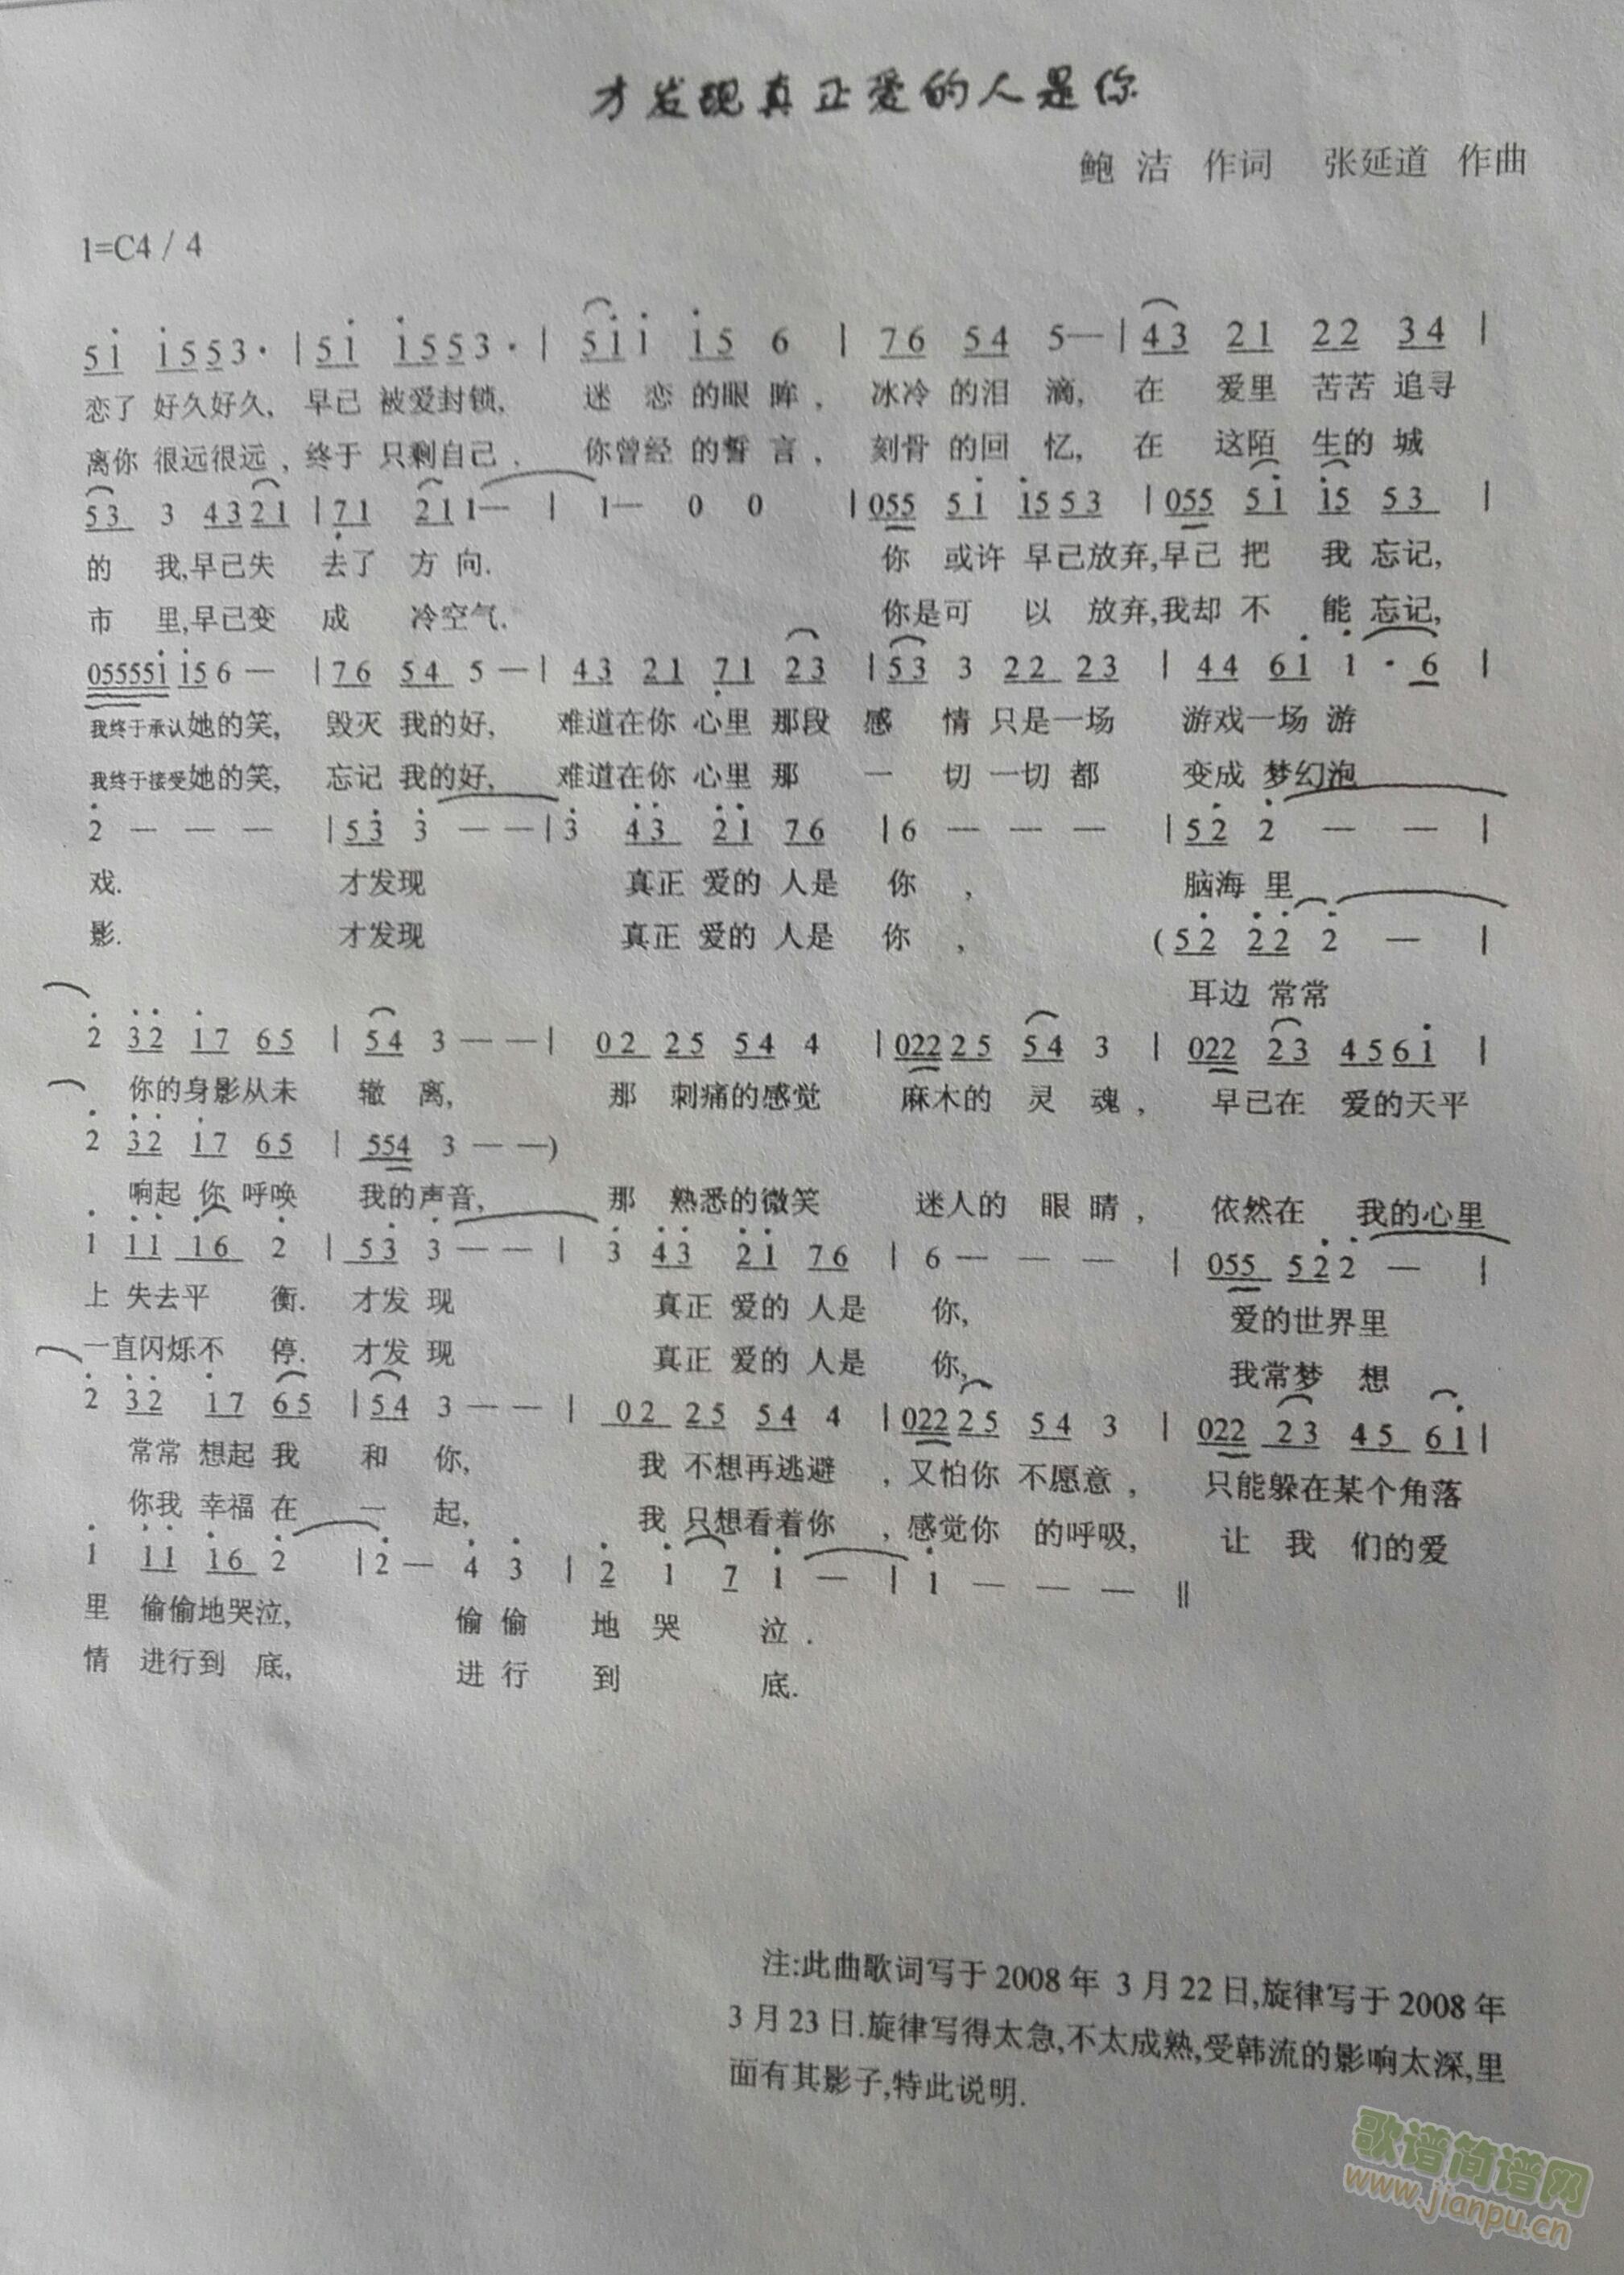 才发现真正爱的人是你
鲍 洁 作词 张延道 作曲
1=C4 / 4
5i i553· | 5i i553· | 5ii i5 6 | 76 54 5— | 43 21 22 34 |
恋了 好久好久, 早已 被爱封锁, 迷 恋 的眼 眸, 冰冷 的泪 滴, 在 爱里 苦苦 追寻
离你 很远很远, 终于 只剩自己. 你曾经 的誓 言, 刻骨 的回 忆, 在 这陌 生的 城
53 3 4321 | 71 211— | 1— 0 0 | 055 5i i553 | 055 5i i5 53 |
的 我,早已失 去了 方 向. 你 或许 早已放弃,早已 把 我 忘记,
市 里,早已变 成 冷空气. 你是可 以 放弃,我却 不 能 忘记,
05555i i5 6 — | 76 54 5 — | 43 21 71 23 | 53 3 22 23 | 44 6i i · 6 |
我终于承认她的笑, 毁灭 我的好, 难道在你 心里 那段 感 情 只是一场 游戏一场 游
我终于接受她的笑, 忘记 我的好, 难道在你 心里 那 一 切 一切 都 变成 梦幻泡
2 — — — | 53 3 — — | 3 43 2i 76 | 6 — — — | 52 2 — — |
戏. 才发现 真正 爱的 人是 你 , 脑海 里
影. 才发现 真正 爱的 人是 你 ,
(52 22 2 — |
耳边 常常
2 32 i7 65 | 54 3 — — | 02 25 54 4 | 02225 54 3 | 022 23 456i |
你的身影从未 辙 离, 那 刺痛的感觉 麻木的 灵 魂, 早已在 爱的天平
2 32 i7 65 | 554 3 — —)
响起 你 呼唤 我的声音, 那 熟悉的微笑 迷人的 眼 睛, 依然在 我的心里
i ii i6 2 | 53 3 — — | 3 43 2i 76 | 6 — — — | 055 522 — |
上 失去平 衡. 才发 现 真正 爱的 人是 你, 爱的世界里
一直闪烁不 停. 才发 现 真正 爱的 人是 你, 我常梦 想
2 32 i7 65 | 54 3 — — | 02 25 54 4 | 02225 54 3 | 022 23 45 6i |
常常 想起 我 和 你, 我 不想再逃避 , 又怕你 不愿意, 只能躲在某个角落
你我 幸福 在 一 起, 我 只想看着你 , 感觉你 的呼吸, 让 我 们的爱
i ii i6 2 | 2 — 4 3 | 2 i 7 i — | i — — — ‖
里 偷偷地哭泣, 偷 偷 地 哭 泣.
情 进行到 底, 进 行 到 底.
注:此曲歌词写于2008年 3月22日,旋律写于2008年
3月23日.旋律写得太急,不太成熟,受韩流的影响太深,里
面有其影子,特此说明.
歌谱简谱网
www.jianpu.cn